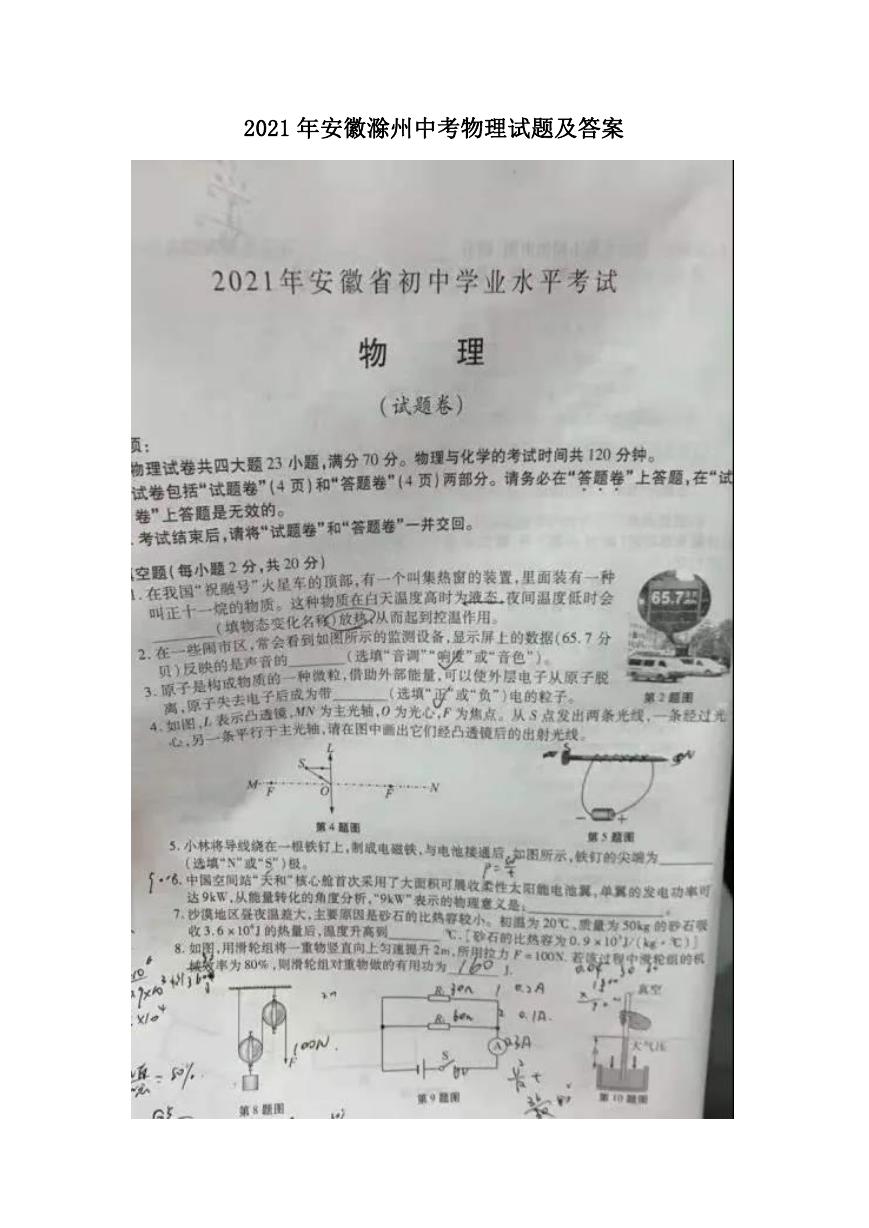 2021 年安徽滁州中考物理试题及答案
2021年安徽省初中学业水平考试
物 理
(试题卷)
页:
物理试卷共四大题 23 小题,满分 70 分。物理与化学的考试时间共 120 分钟。
试卷包括“试题卷”(4 页)和“答题卷”(4 页)两部分。请务必在“答题卷”上答题,在“试
卷”上答题是无效的。
考试结束后,请将“试题卷”和“答题卷”一并交回。
空题(每小题 2 分,共 20 分)
1. 在我国“祝融号”火星车的顶部,有一个叫集热窗的装置,里面装有一种
叫正十一烷的物质。这种物质在白天温度高时为液态,夜间温度低时会
______(填物态变化名称)放热,从而起到控温作用。
65.7
2. 在一些闹市区,常会看到如图所示的监测设备,显示屏上的数据(65.7 分
贝)反映的是声音的______(选填“音调”“响度”或“音色”)。
3. 原子是构成物质的一种微粒,借助外部能量,可以使外层电子从原子脱
离,原子失去电子后成为带______(选填“正”或“负”)电的粒子。
第 2 题图
4. 如图,L 表示凸透镜,MN 为主光轴,O 为光心,F 为焦点。从 S 点发出两条光线,一条经过光
心,另一条平行于主光轴,请在图中画出它们经凸透镜后的出射光线。
L
S
M F O F N
N
- +
第 4 题图
第 5 题图
5. 小林将导线绕在一根铁钉上,制成电磁铁,与电池接通后,如图所示,铁钉的尖端为______
(选填“N”或“S”)极。
6. 中国空间站“天和”核心舱首次采用了大面积可展收柔性太阳能电池翼,单翼的发电功率可
达 9kW,从能量转化的角度分析,“9kW”表示的物理意义是:______。
7. 沙漠地区昼夜温差大,主要原因是砂石的比热容较小。初温为 20℃,质量为 50kg 的砂石吸
收 3.6×10⁵J 的热量后,温度升高到______℃。[砂石的比热容为 0.9×10³J/(kg·℃)]
8. 如图,用滑轮组将一重物竖直向上匀速提升 2m,所用拉力 F=100N. 若该过程中滑轮组的机
械效率为 80%,则滑轮组对重物做的有用功为 160 J.
R₁ 30Ω 1 0.2A
R₂ 60Ω 2 0.1A
A 0.3A
S
6V
100N
F
真空
大气压
h
= 80%
第 8 题图
第 9 题图
第 10 题图